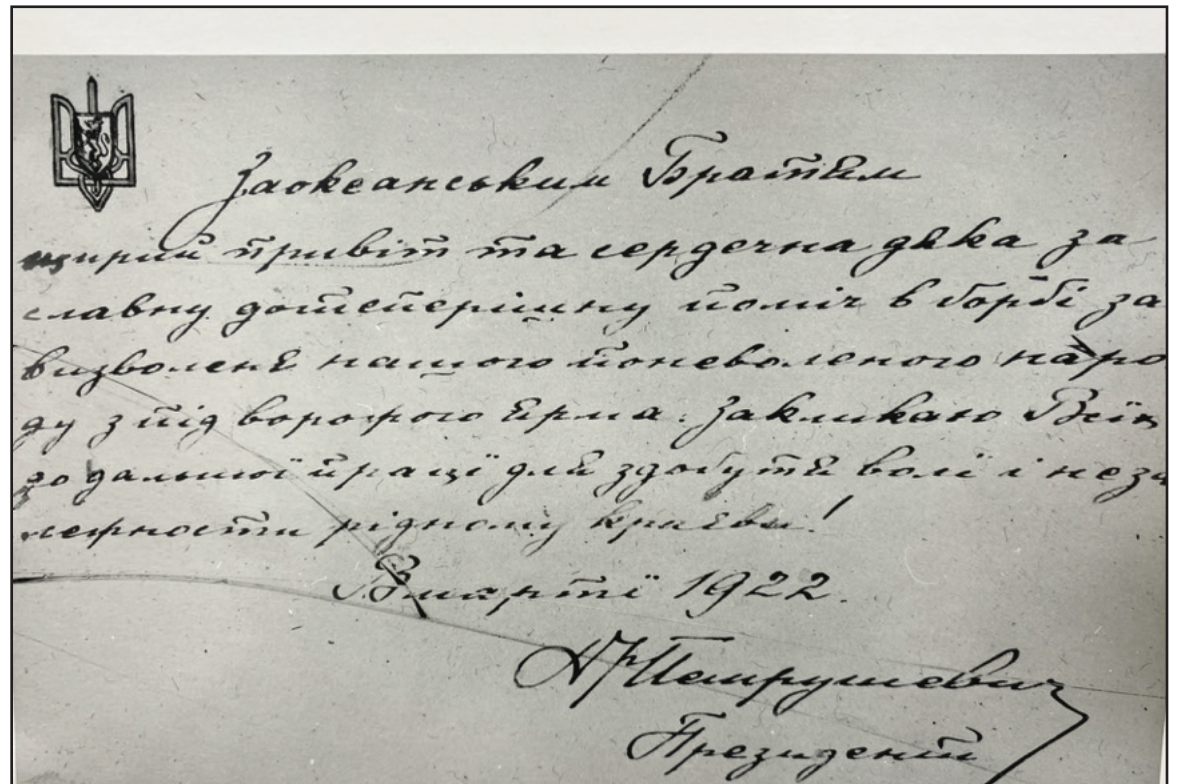 Заокеанським Братям
щирий привіт та сердечна дяка за
славну дотеперішну поміч в борбі за
визволенє нашого поневоленого наро
ду з під ворожого ярма. Закликаю Всїх
до дальшої працї для здобутя волї і неза
лежности рідному краєви!
В марті 1922.
Петрушевич
Президент